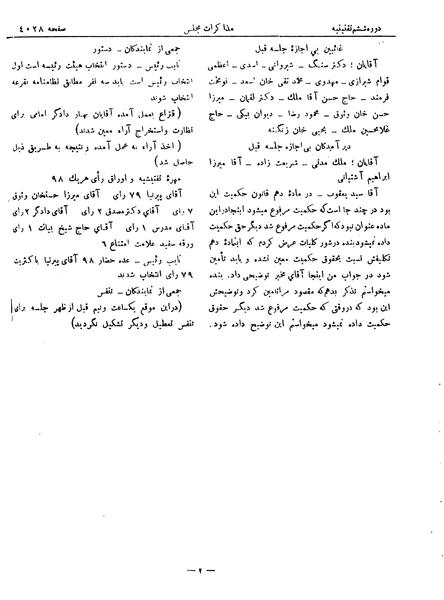 دوره ششم تقنینیه
مذاکرات مجلس
صفحه ۴۰۲۸
غائبین بی اجازه جلسه قبل
آقایان : دکتر سنگ ـ شیروانی ـ اسدی ـ اعظمی
قوام شیرازی ـ مهدوی ـ محمد تقی خان اسعد ـ نوبخت
فرمند ـ حاج حسن آقا ملك ـ دکتر لقمان ـ میرزا
حسن خان وثوق ـ محمود رضا ـ دیوان بیگی ـ حاج
غلامحسین ملك ـ یحیی خان زنگنه
دیر آمدگان بی اجازه جلسه قبل
آقایان : ملك مدنی ـ شریعت زاده ـ آقا میرزا
ابراهیم آشتیانی
آقا سید یعقوب ـ در مادۀ دهم قانون حکمیت این
بود در چند جا است که حکمیت مرفوع میشود اینجا در این
ماده عنوان نبود که اگر حکمیت مرفوع شد دیگر حق حکمیت
داده نمیشود بنده در شور کلیات عرض کردم که اینمادۀ دهم
تکلیفش نسبت بحقوق حکمیت معین نشده و باید تأمین
شود در جواب من اینجا آقای مخبر توضیحی داد. بنده
میخواستم تذکر بدهم که مقصود مرا تامین کرد و توضیحش
این بود که در وقتی که حکمیت مرفوع شد دیگر حقوق
حکمیت داده نمیشود میخواستم این توضیح داده شود.
جمعی از نمایندگان ـ دستور
نایب رئیس ـ دستور انتخاب هیئت رئیسه است اول
انتخاب رئیس است باید سه نفر مطابق نظامنامه بقرعه
انتخاب شوند
( قرّاع بعمل آمده آقایان بهار دادگر امامی برای
نظارت و استخراج آراء معین شدند )
( اخذ آراء به عمل آمده و نتیجه به طریق ذیل
حاصل شد )
مهرۀ تفتیشیه و اوراق رأی هریك ۹۸
آقای پیرنیا ۷۹ رای آقای میرزا حسنخان وثوق
۷ رای ـ آقای دکتر مصدق ۲ رای ـ آقای دادگر ۲ رای
آقای مدرس ۱ رای آقای حاج شیخ بیات ۱ رای
ورقه سفید علامت امتناع ۶
نایب رئیس ـ عده حضار ۹۸ آقای پیرنیا با کثریت
۷۹ رای انتخاب شدند
جمعی از نمایندگان ـ تنفس
(در این موقع یکساعت ونیم قبل از ظهر جلسه برای
تنفس تعطیل و دیگر تشکیل نگردید)
ـ ۲ ـ